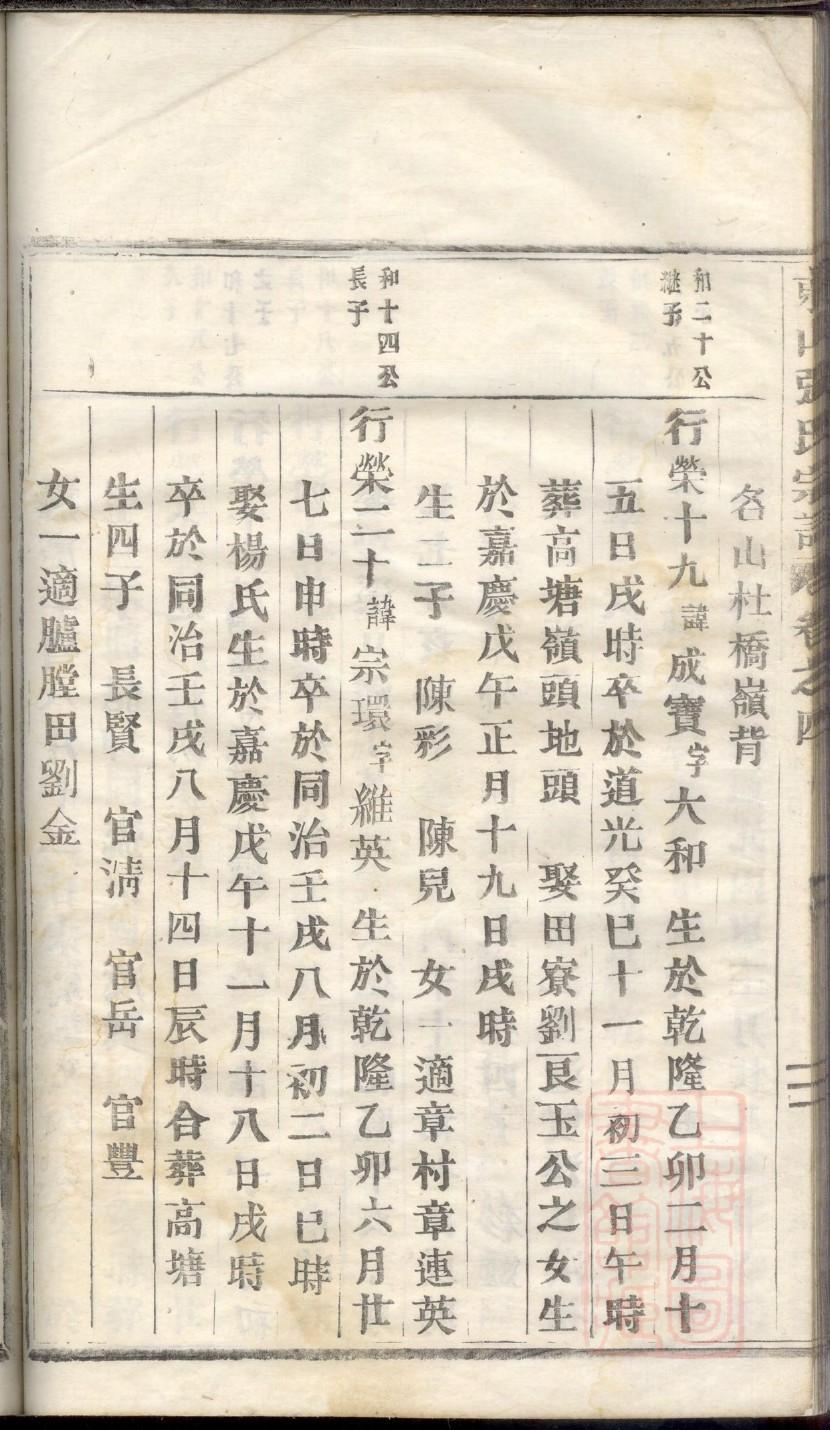 張氏宗譜卷之四
二
各山杜橋嶺背
和二十公
継子
行榮十九諱成寶字大和 生於乾隆乙卯二月十
五日戌時卒於道光癸巳十一月初三日午時
葬高塘嶺頭地頭 娶田寮劉艮玉公之女生
於嘉慶戊午正月十九日戌時
生二子 陳彩 陳兒 女一適章村章連英
和十四公
長子
行榮二十諱宗環字維英 生於乾隆乙卯六月廿
七日申時卒於同治壬戌八月初二日巳時
娶楊氏生於嘉慶戊午十一月十八日戌時
卒於同治壬戌八月十四日辰時合葬高塘
生四子 長賢 官淸 官岳 官豐
女一適臚膛田劉金